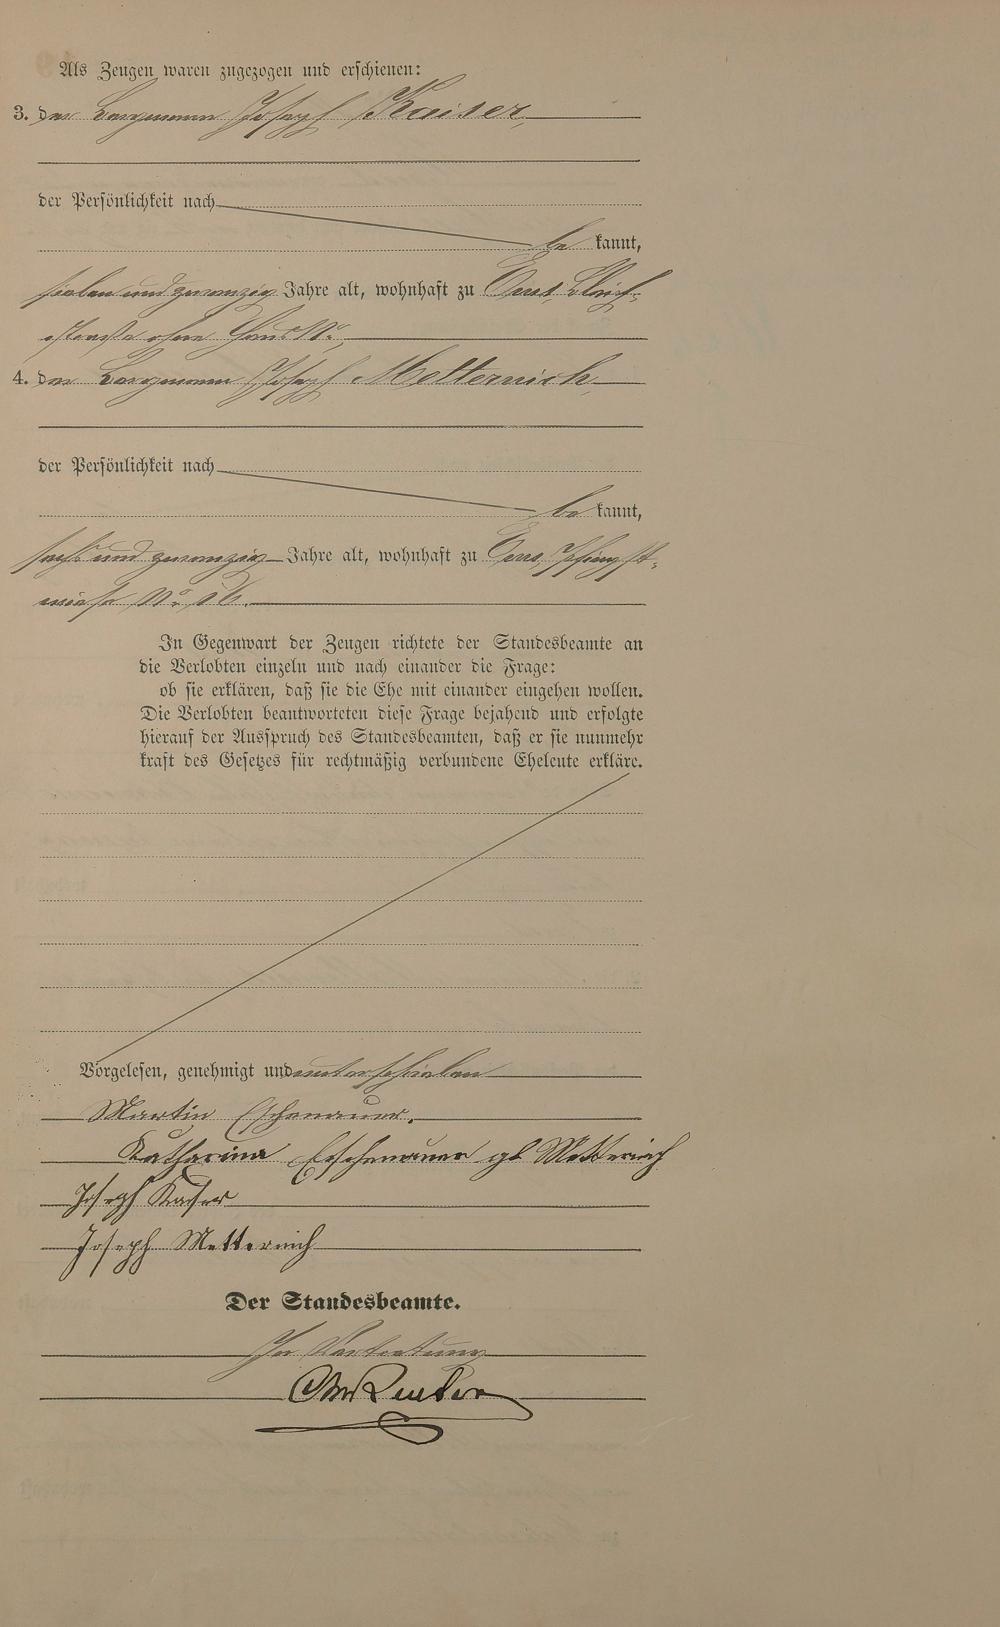 Als Zeugen waren zugezogen und erschienen:
3. der Bergmann Joseph Kaiser,
der Persönlichkeit nach
be kannt,
sieben und zwanzig Jahre alt, wohnhaft zu Ems, Bleich-
straße ohne Haus No.
4. der Bergmann Joseph Metternich,
der Persönlichkeit nach
be kannt,
sechs und zwanzig Jahre alt, wohnhaft zu Ems, Pfingst-
wiese No. 16.
In Gegenwart der Zeugen richtete der Standesbeamte an
die Verlobten einzeln und nach einander die Frage:
ob sie erklären, daß sie die Ehe mit einander eingehen wollen.
Die Verlobten beantworteten diese Frage bejahend und erfolgte
hierauf der Ausspruch des Standesbeamten, daß er sie nunmehr
kraft des Gesetzes für rechtmäßig verbundene Eheleute erkläre.
Vorgelesen, genehmigt und unterschrieben
Martin Eschenauer.
Katharina Eschenauer gb Metternich
Joseph Kaiser
Joseph Metternich
Der Standesbeamte.
In Vertretung